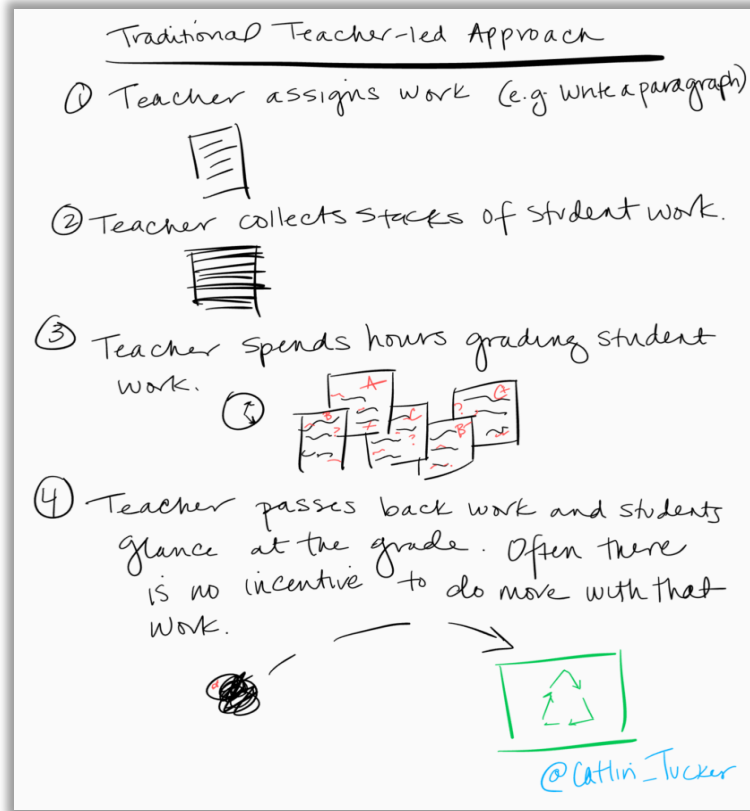 Traditional Teacher-led Approach
① Teacher assigns work (e.g. write a paragraph)
② Teacher collects stacks of student work.
③ Teacher spends hours grading student
work.
A
B
?
C
?
B
?
④ Teacher passes back work and students
glance at the grade. Often there
is no incentive to do more with that
work.
@Catlin_Tucker